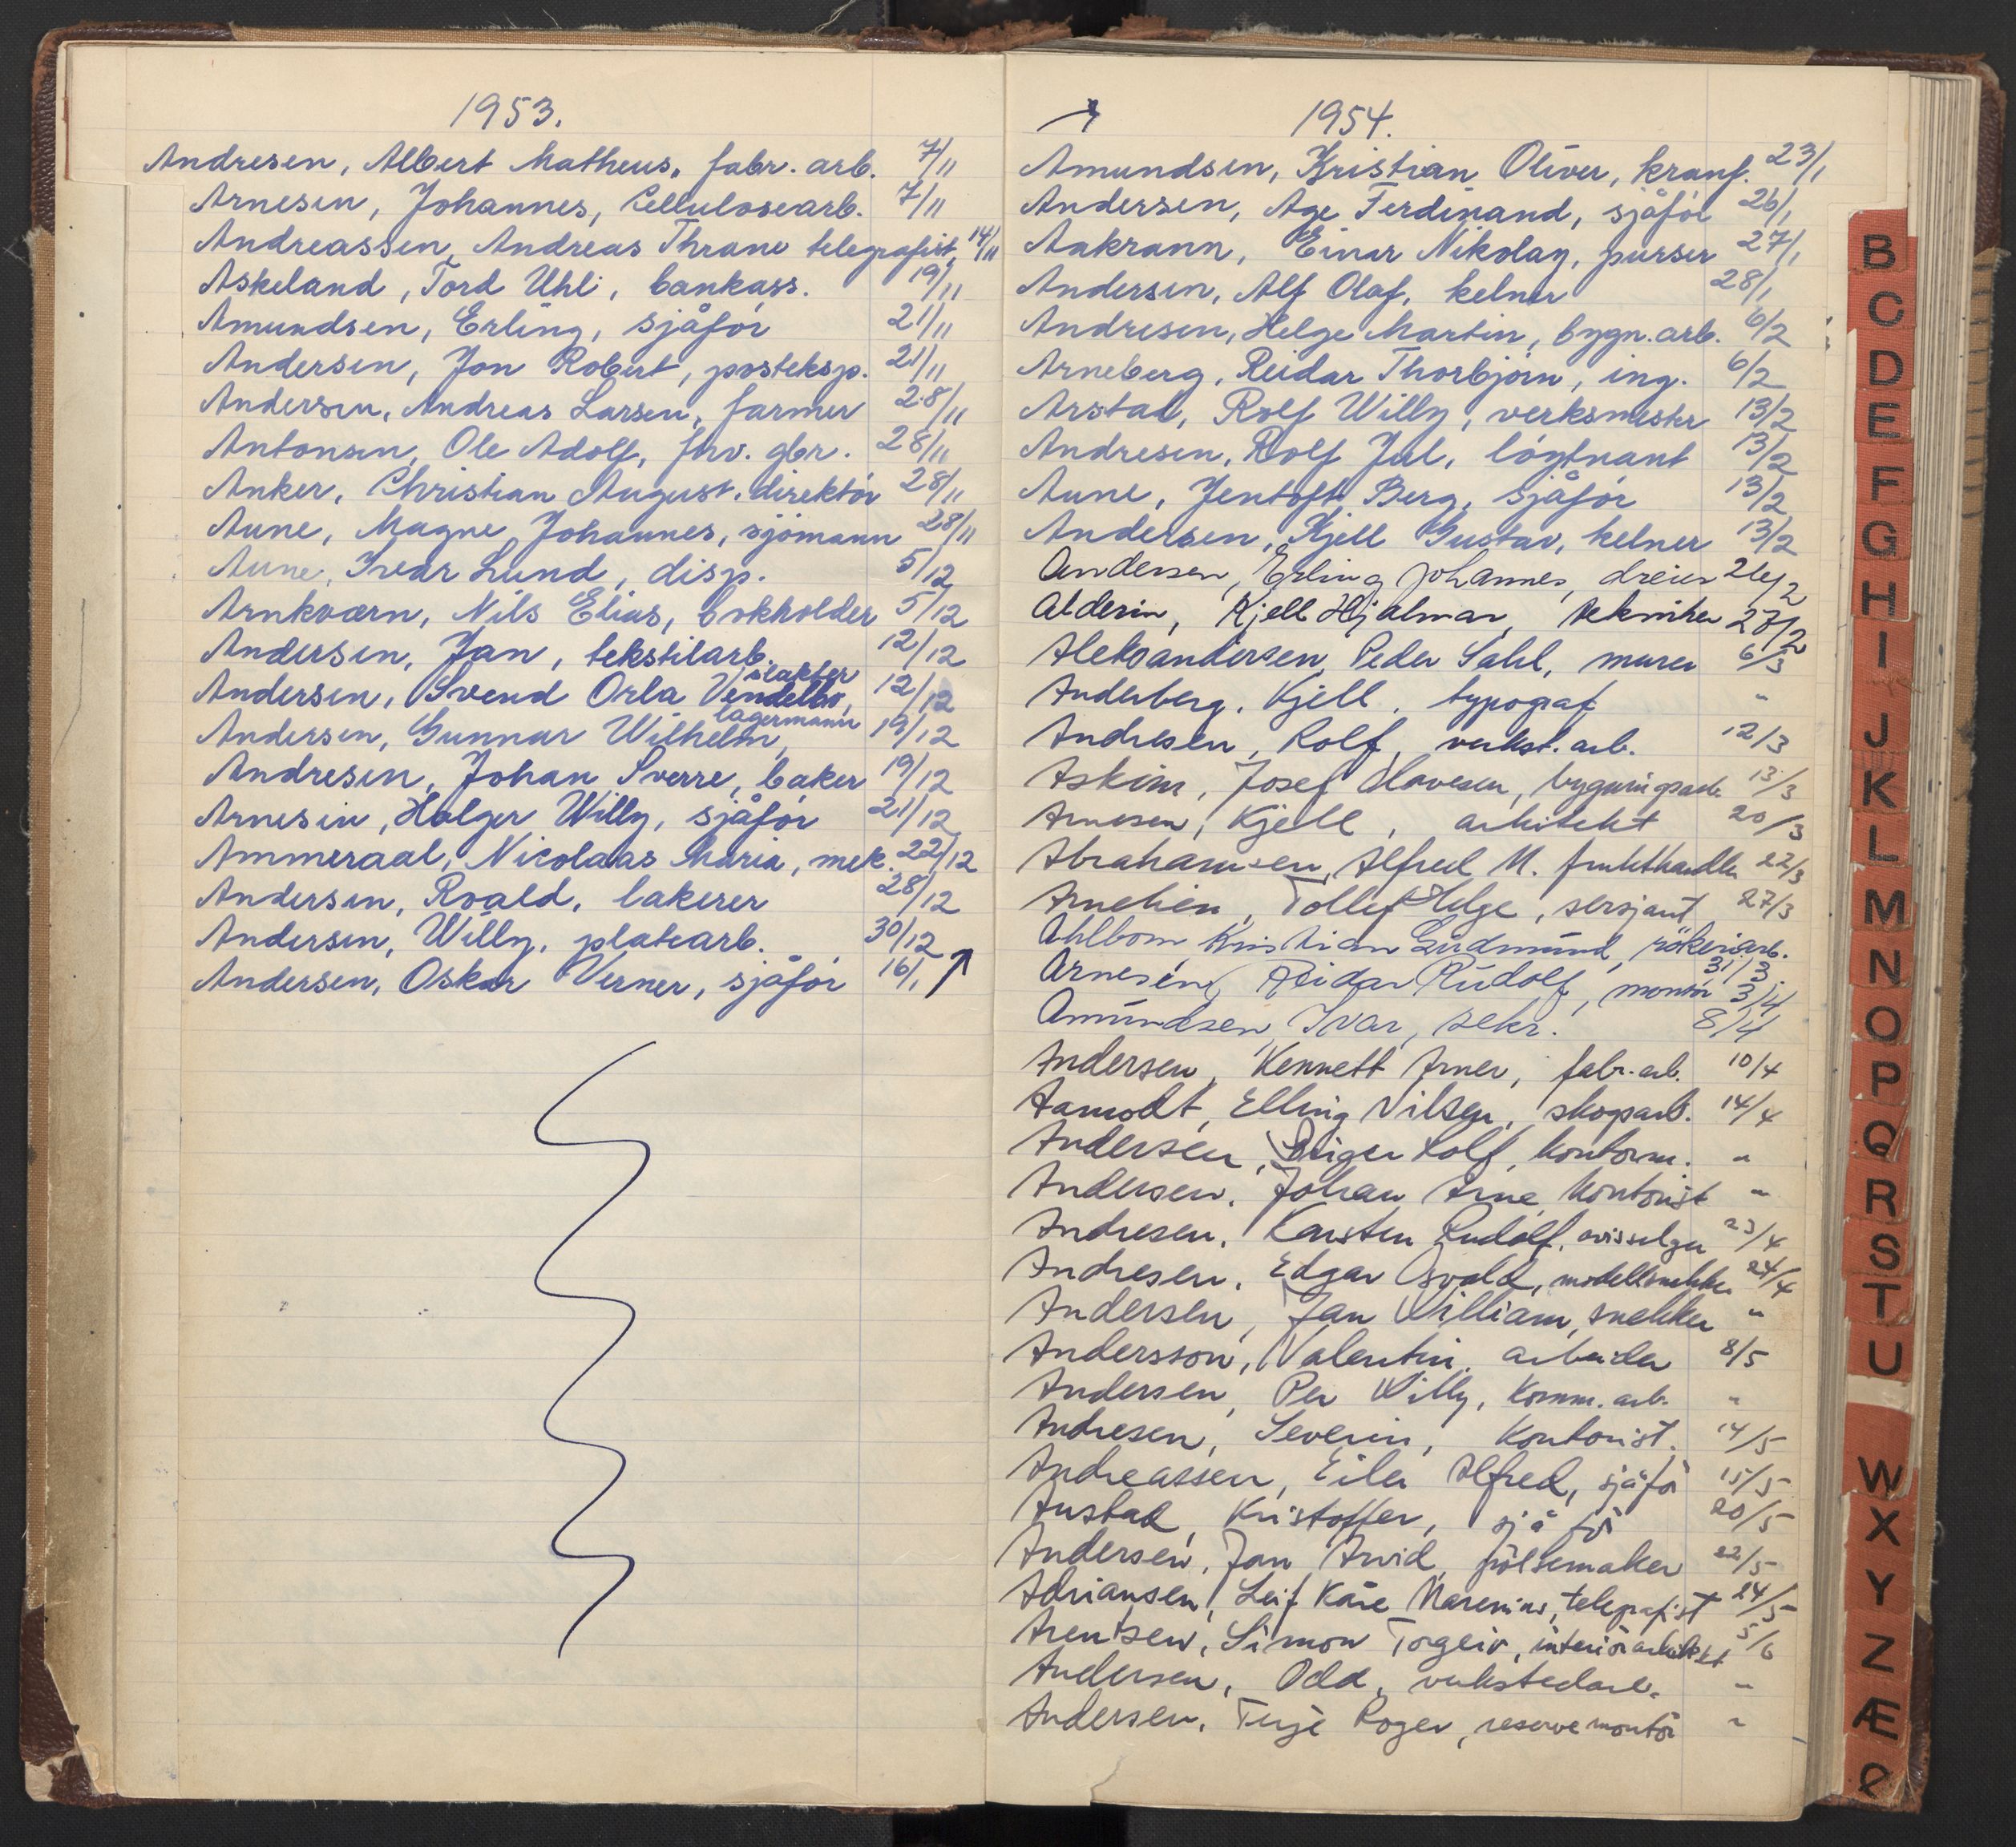 1953.
Andresen, Albert Matheus, fabr. arb. 7/11
Arnesen, Johannes, Cellulosearb. 7/11
Andreassen, Andreas Thrane telegrafist, 14/11
Askeland, Tord Uhli, bankass. 19/11
Amundsen, Erling, sjåför 21/11
Andersen, Jon Robert, posteksp. 21/11
Andersen, Andreas Larsen, farmer 28/11
Antonsen, Ole Adolf, frv. gbr. 28/11
Anker, Christian August, direktör 28/11
Aune, Magne Johannes, sjömann 28/11
Aune, Ivar Lund, disp. 5/12
Arnkværn, Nils Elias, bokholder 5/12
Andersen, Jan, tekstilarb. 12/12
Andersen, Svend Orla Vendelbo, slakter 12/12
Andersen, Gunnar Wilhelm, lagermann 19/12
Andresen, Johan Sverre, baker 19/12
Arnesen, Holger Willy, sjåför 21/12
Ammeraal, Nicolaas Maria, mek. 22/12
Andersen, Roald, lakerer 28/12
Andersen, Willy, platearb. 30/12
Andersen, Oskar Verner, sjåför 16/1
1954.
Amundsen, Kristian Oliver, kranf. 23/1
Andersen, Åge Ferdinand, sjåför 26/1
Aakrann, Einar Nikolay, purser 27/1
Andersen, Alf Olaf, kelner 28/1
Andresen, Helge Martin, bygn. arb. 6/2
Arneberg, Reidar Thorbjörn, ing. 6/2
Arstad, Rolf Willy, verksmester 13/2
Andresen, Rolf Jul, löytnant 13/2
Aune, Jentoft Berg, sjåför 13/2
Andersen, Kjell Gustav, kelner 13/2
Andersen, Erling Johannes, dreier 26/2
Alderin, Kjell Hjalmar, tekniker 27/2
Aleksandersen, Peder Sahl, murer 6/3
Anderberg, Kjell, typograf "
Andresen, Rolf, verkst. arb. 12/3
Askim, Josef Olavesen, bygningsarb. 13/3
Arnesen, Kjell, arkitekt 20/3
Abrahamsen, Alfred M. frukthandler 22/3
Arnehien, Tollef Helge, sersjant 27/3
Ahlbom, Kristian Gudmund, rökeriarb. 31/3
Arnesen, Reidar Rudolf, montör 3/4
Amundsen, Ivar, sekr. 8/4
Andersen, Kennett Arner, fabr. arb. 10/4
Aamodt, Elling Nilsen, skogsarb. 14/4
Andersen, Birger Rolf, kontorm. "
Andersen, Johan Arne, kontorist "
Andresen, Karsten Rudolf, avisselger 23/4
Andresen, Edgar Osvald, modellsnekker 24/4
Andersen, Jan William, snekker "
Andersson, Valentin, arbeider 8/5
Andersen, Per Willy, komm. arb. "
Andresen, Severin, kontorist. 14/5
Andreassen, Eiler Alfred, sjåför 15/5
Austad, Kristoffer, sjåför 20/5
Andersen, Jan Arvid, pölsemaker 22/5
Adriansen, Leif Kåre Marenius, telegrafist 24/5
Arentsen, Simon Torgeir, interiörarkitekt 5/6
Andersen, Odd, verkstedarb. "
Andersen, Terje Roger, reservemontör "
B
C
D
E
F
G
H
I
J
K
L
M
N
O
P
Q
R
S
T
U
W
X
Y
Z
Æ
Ø